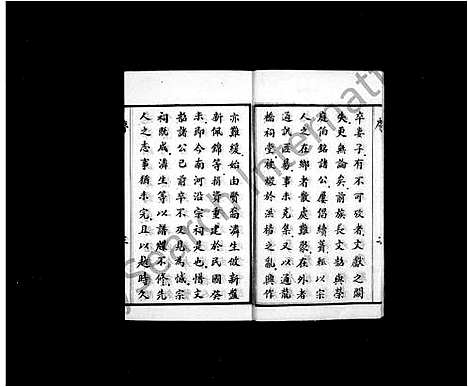 卒妻子有不可攷者文獻之闕
失更無論矣前族長文韜與榮
庭伯銘諸公屢倡續葺輒以宗
人之在鄉者散處難聚在外者
通訊匪易事未克集又以通龍
橋祠堂被燬於洪楊之亂興作
亦難緩始由賢裔濟生攸新盤
新佩錦等捐資重建於民國癸
未即今南河沿宗祠是也惜文
韜諸公已前卒不及見為憾宗
祠既成濟生等以譜牒不修先
人之志事猶未完且以越時久